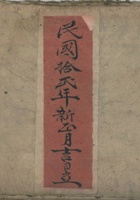 民國拾弍年新正月吉日立